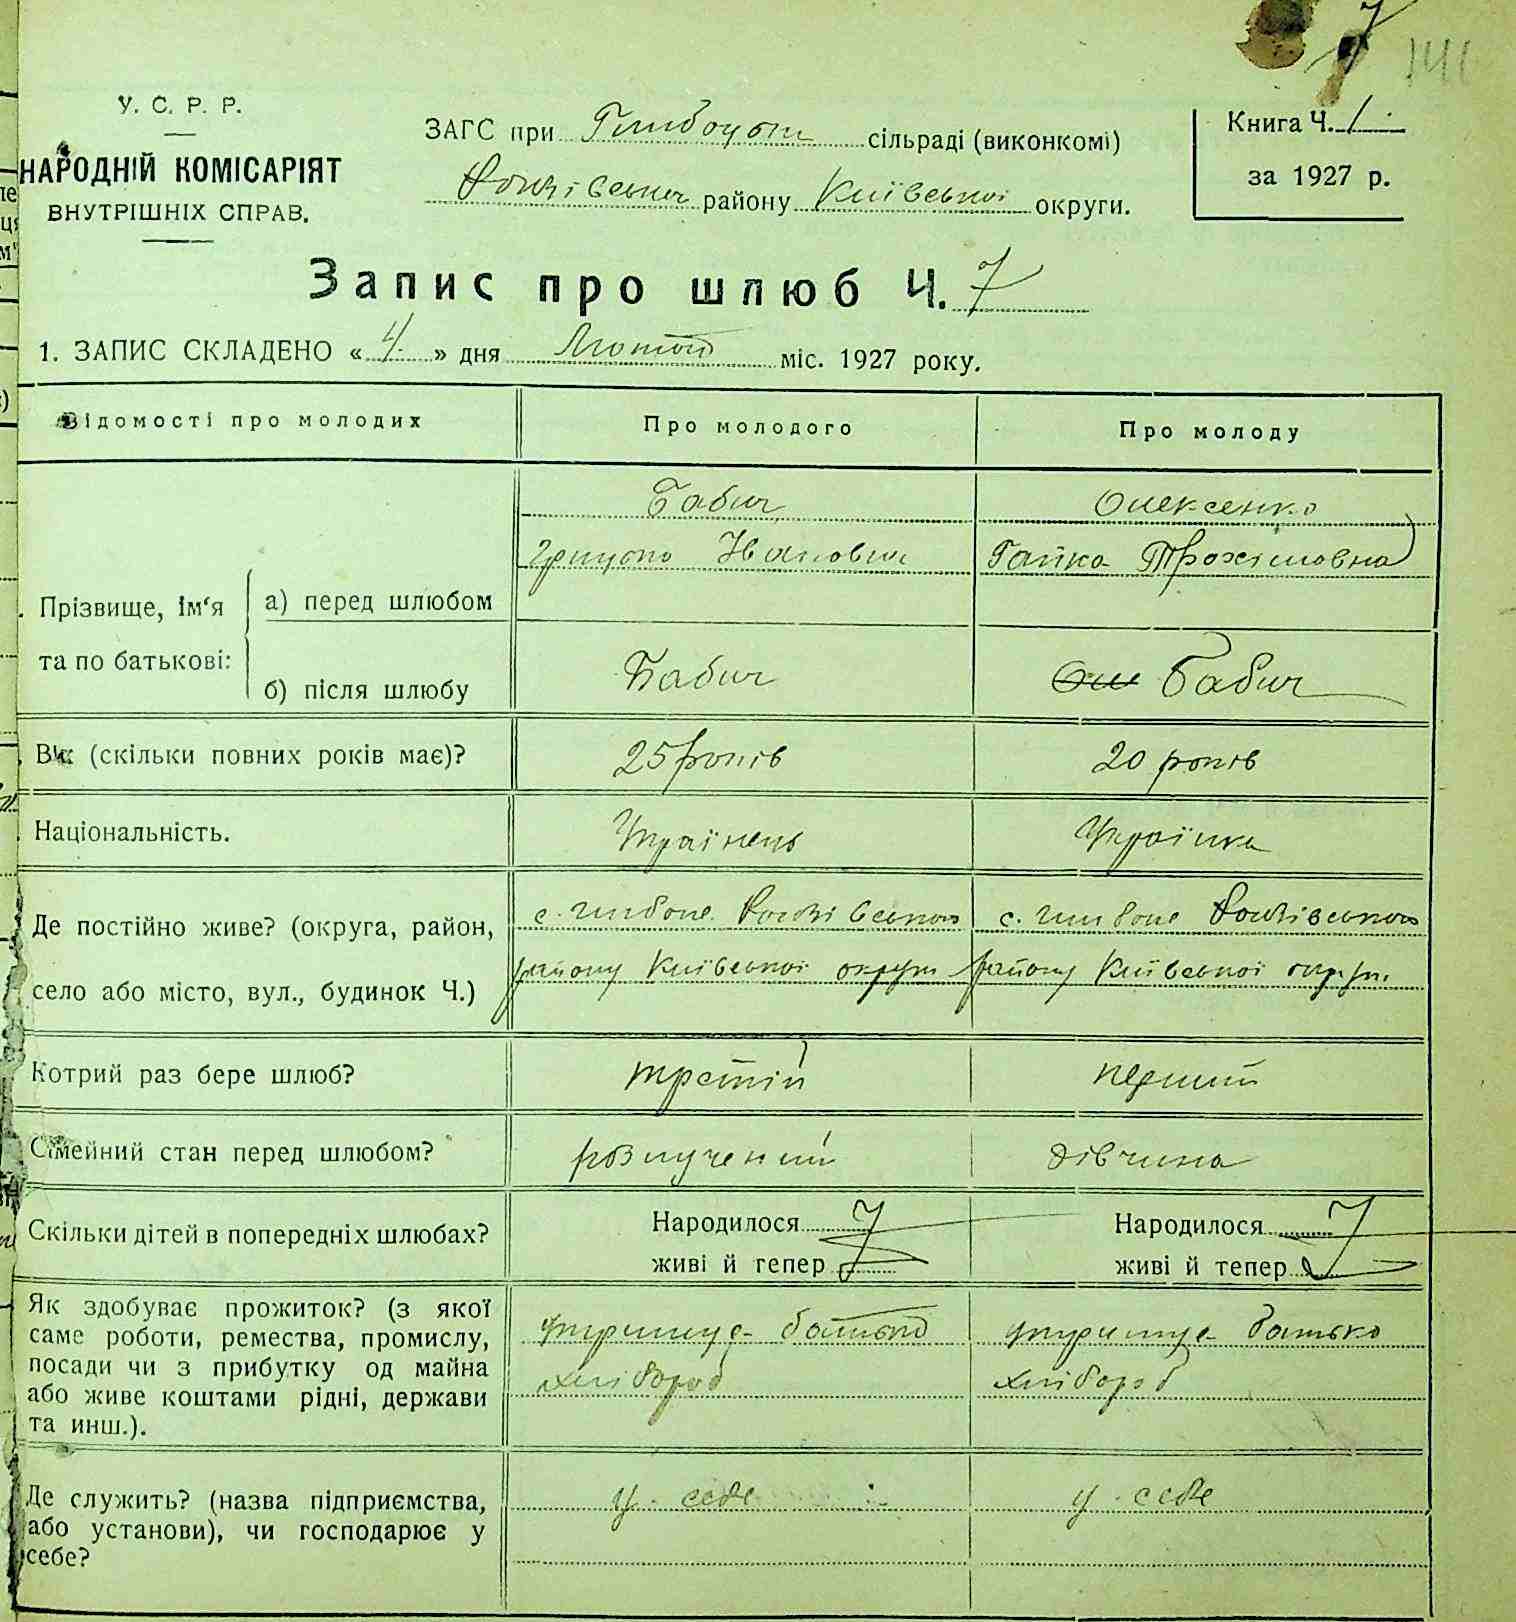 7
141
У. С. Р. Р.
НАРОДНІЙ КОМІСАРІЯТ
ВНУТРІШНІХ СПРАВ.
ЗАГС при сільраді (виконкомі)
району Київської округи.
Книга Ч. 1.
за 1927 р.
Запис про шлюб Ч. 7
1. ЗАПИС СКЛАДЕНО « 4 » дня Лютого міс. 1927 року.
Відомості про молодих
Про молодого
Про молоду
Прізвище, Ім'я
та по батькові:
а) перед шлюбом
Бабич
Олексенко
Грицько Іванович
Гапка Трохимовна
б) після шлюбу
Бабич
Бабич
Вік (скільки повних років має)?
25 років
20 років
Національність.
Українець
Українка
Де постійно живе? (округа, район,
село або місто, вул., будинок Ч.)
с.
району Київської округи
с.
району Київської округи
Котрий раз бере шлюб?
третій
перший
Сімейний стан перед шлюбом?
розлучений
дівчина
Скільки дітей в попередніх шлюбах?
Народилося
живі й тепер
Народилося
живі й тепер
Як здобуває прожиток? (з якої
саме роботи, ремества, промислу,
посади чи з прибутку од майна
або живе коштами рідні, держави
та инш.).
утримує батько
хлібороб
утримує батько
хлібороб
Де служить? (назва підприємства,
або установи), чи господарює у
себе?
у себе
у себе